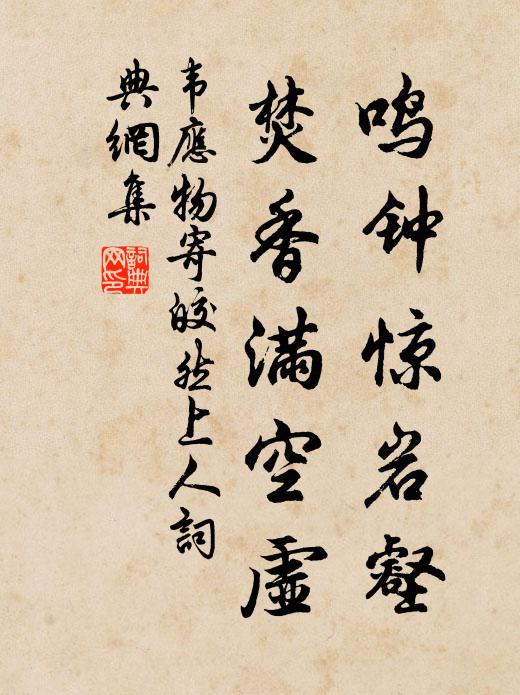 鸣钟惊岩壑
焚香满空虚
韦應物寄皎然上人詞
典網集
詞典网印